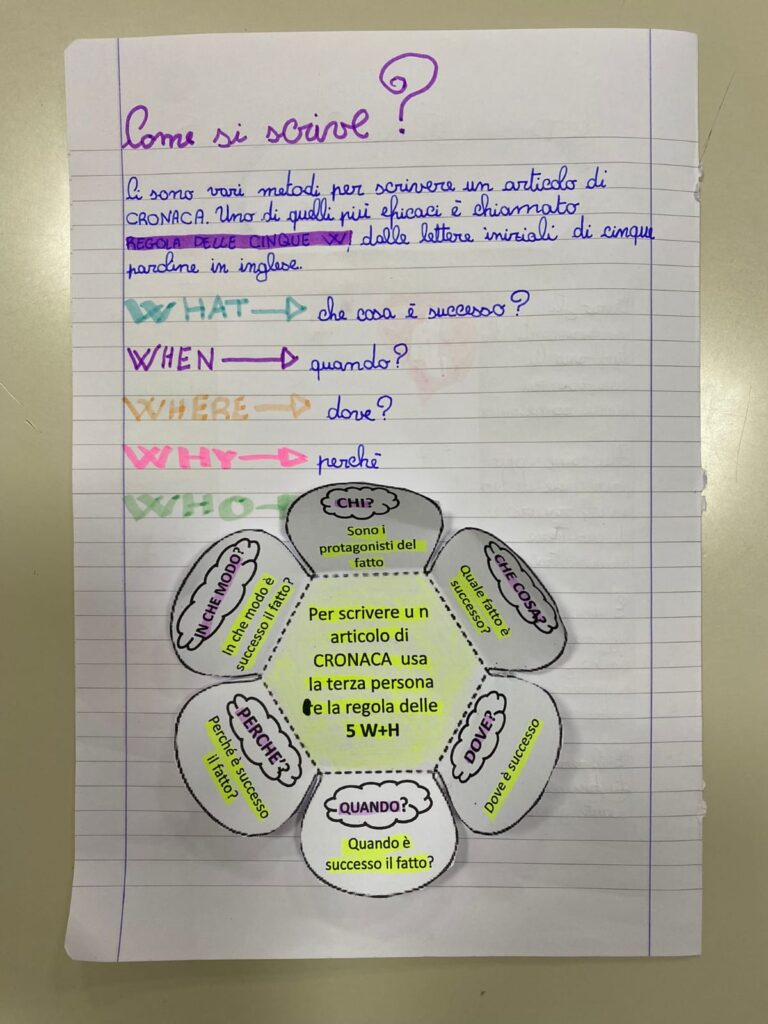 Come si scrive?
Ci sono vari metodi per scrivere un articolo di
CRONACA. Uno di quelli più efficaci è chiamato
REGOLA DELLE CINQUE W, dalle lettere iniziali di cinque
paroline in inglese.
WHAT → che cosa è successo?
WHEN → quando?
WHERE → dove?
WHY → perchè
WHO
CHI?
Sono i
protagonisti del
fatto
CHE COSA?
Quale fatto è
successo?
DOVE?
Dove è successo
QUANDO?
Quando è
successo il fatto?
PERCHE'?
Perché è successo
il fatto?
IN CHE MODO?
In che modo è
successo il fatto?
Per scrivere u n
articolo di
CRONACA usa
la terza persona
e la regola delle
5 W+H